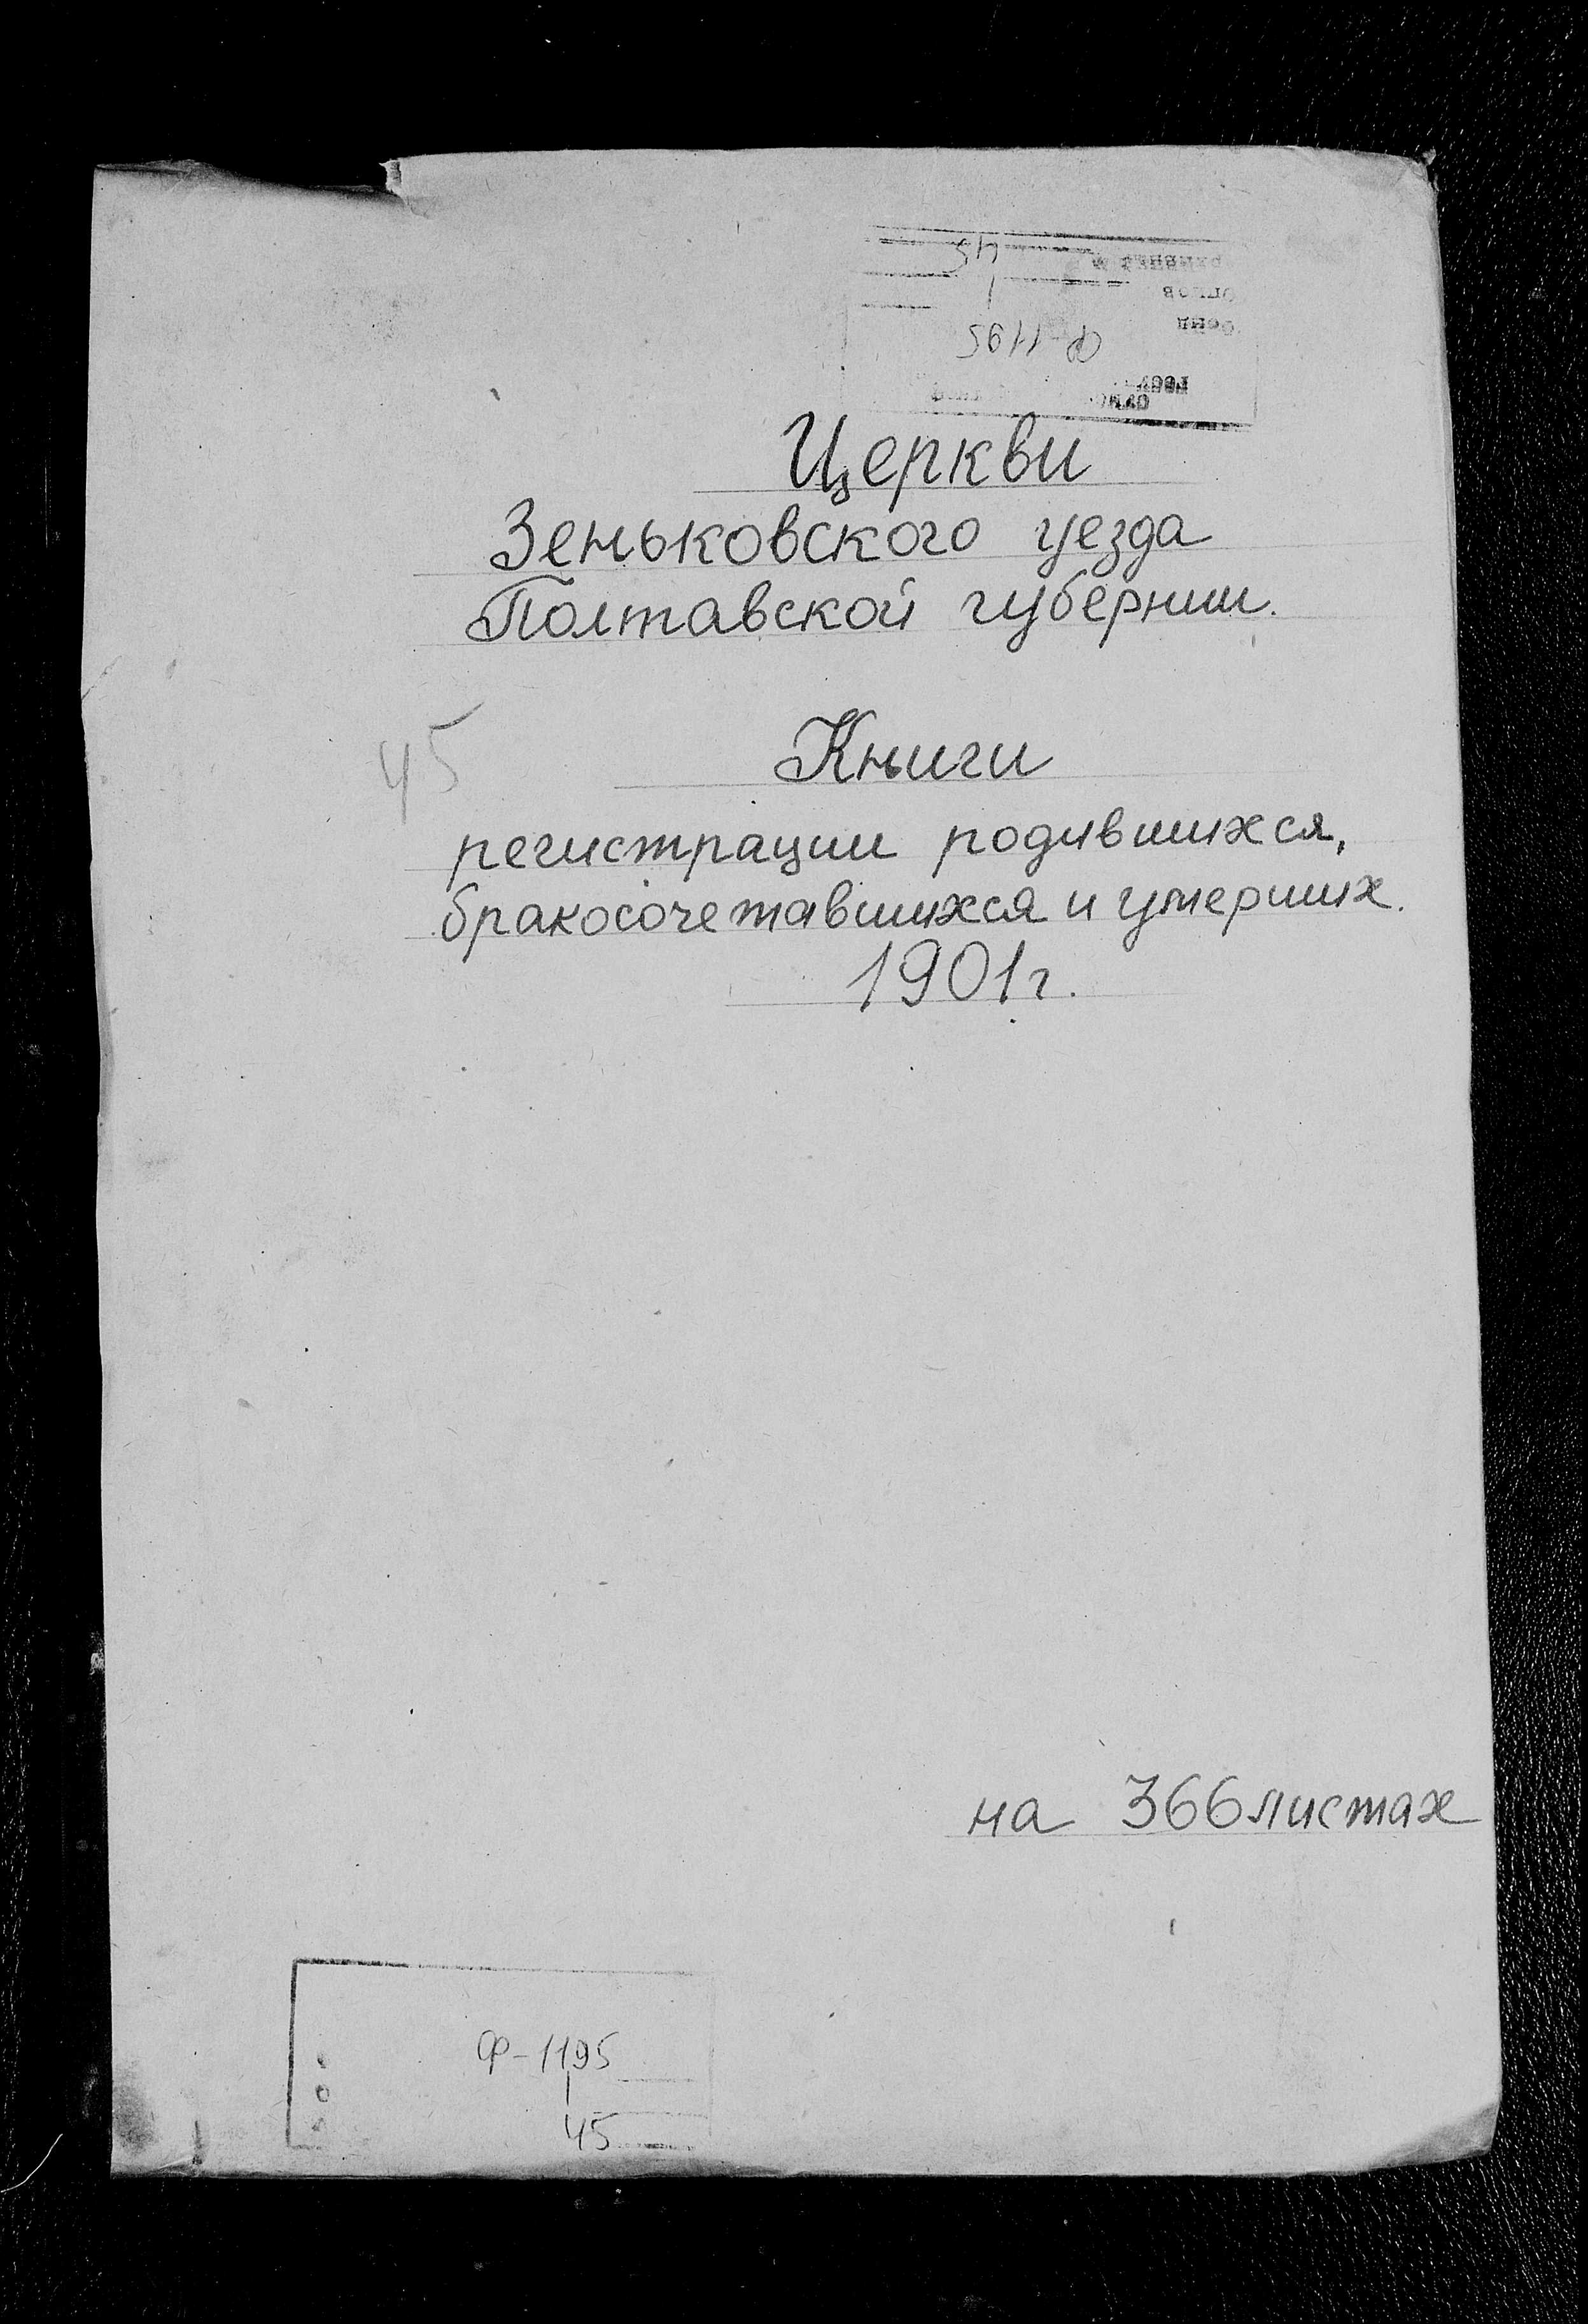 45
Ф-1195
Фонд
Церкви
Зеньковского уезда
Полтавской губернии.
45
Книги
регистрации родившихся,
бракосочетавшихся и умерших.
1901г.
на 366 листах
Ф-1195
1
45